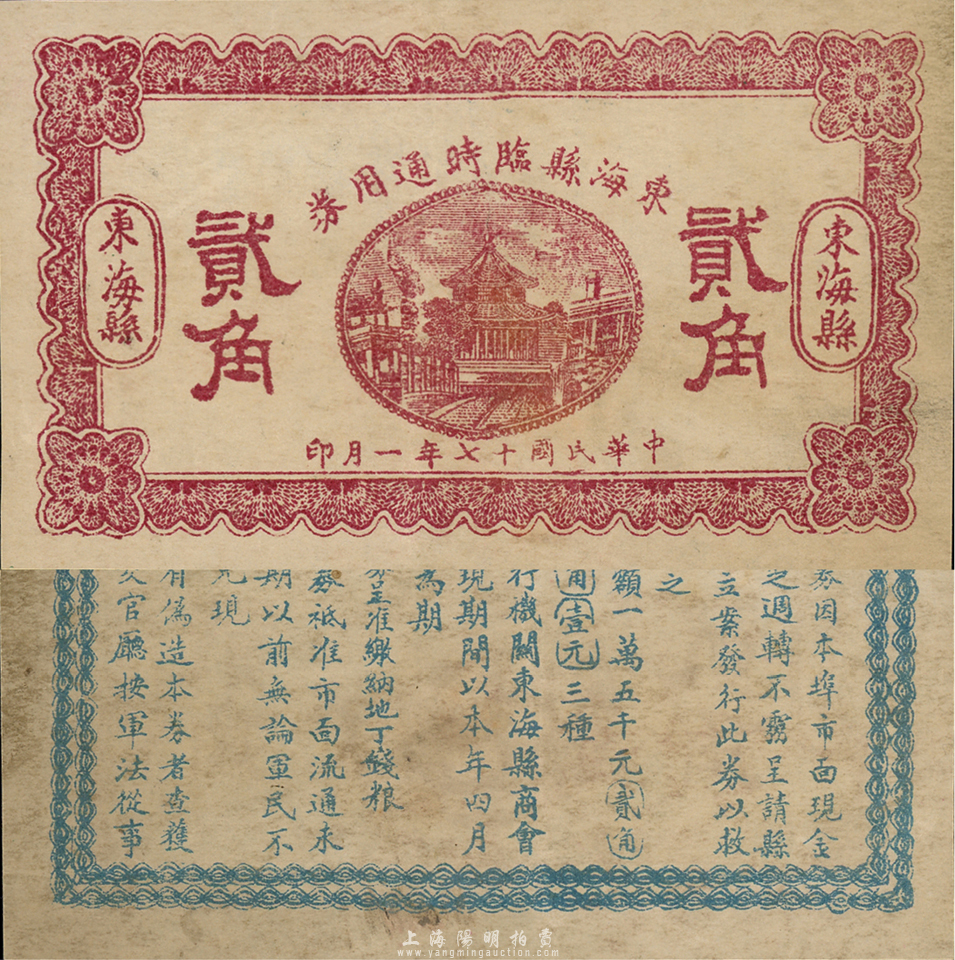 東海縣臨時通用券
貳角
貳角
東海縣
東海縣
中華民國十七年一月印
券因本埠市面現金
週轉不靈呈請縣
立案發行此券以救
之
額一萬五千元貳通
通壹元三種
行機關東海縣商會
現期間以本年四月
為期
准繳納地丁錢粮
券祇准市面流通未
期以前無論軍民不
兌現
有偽造本券者查獲
官廳按軍法從事
上海陽明拍賣
www.yangmingauction.com